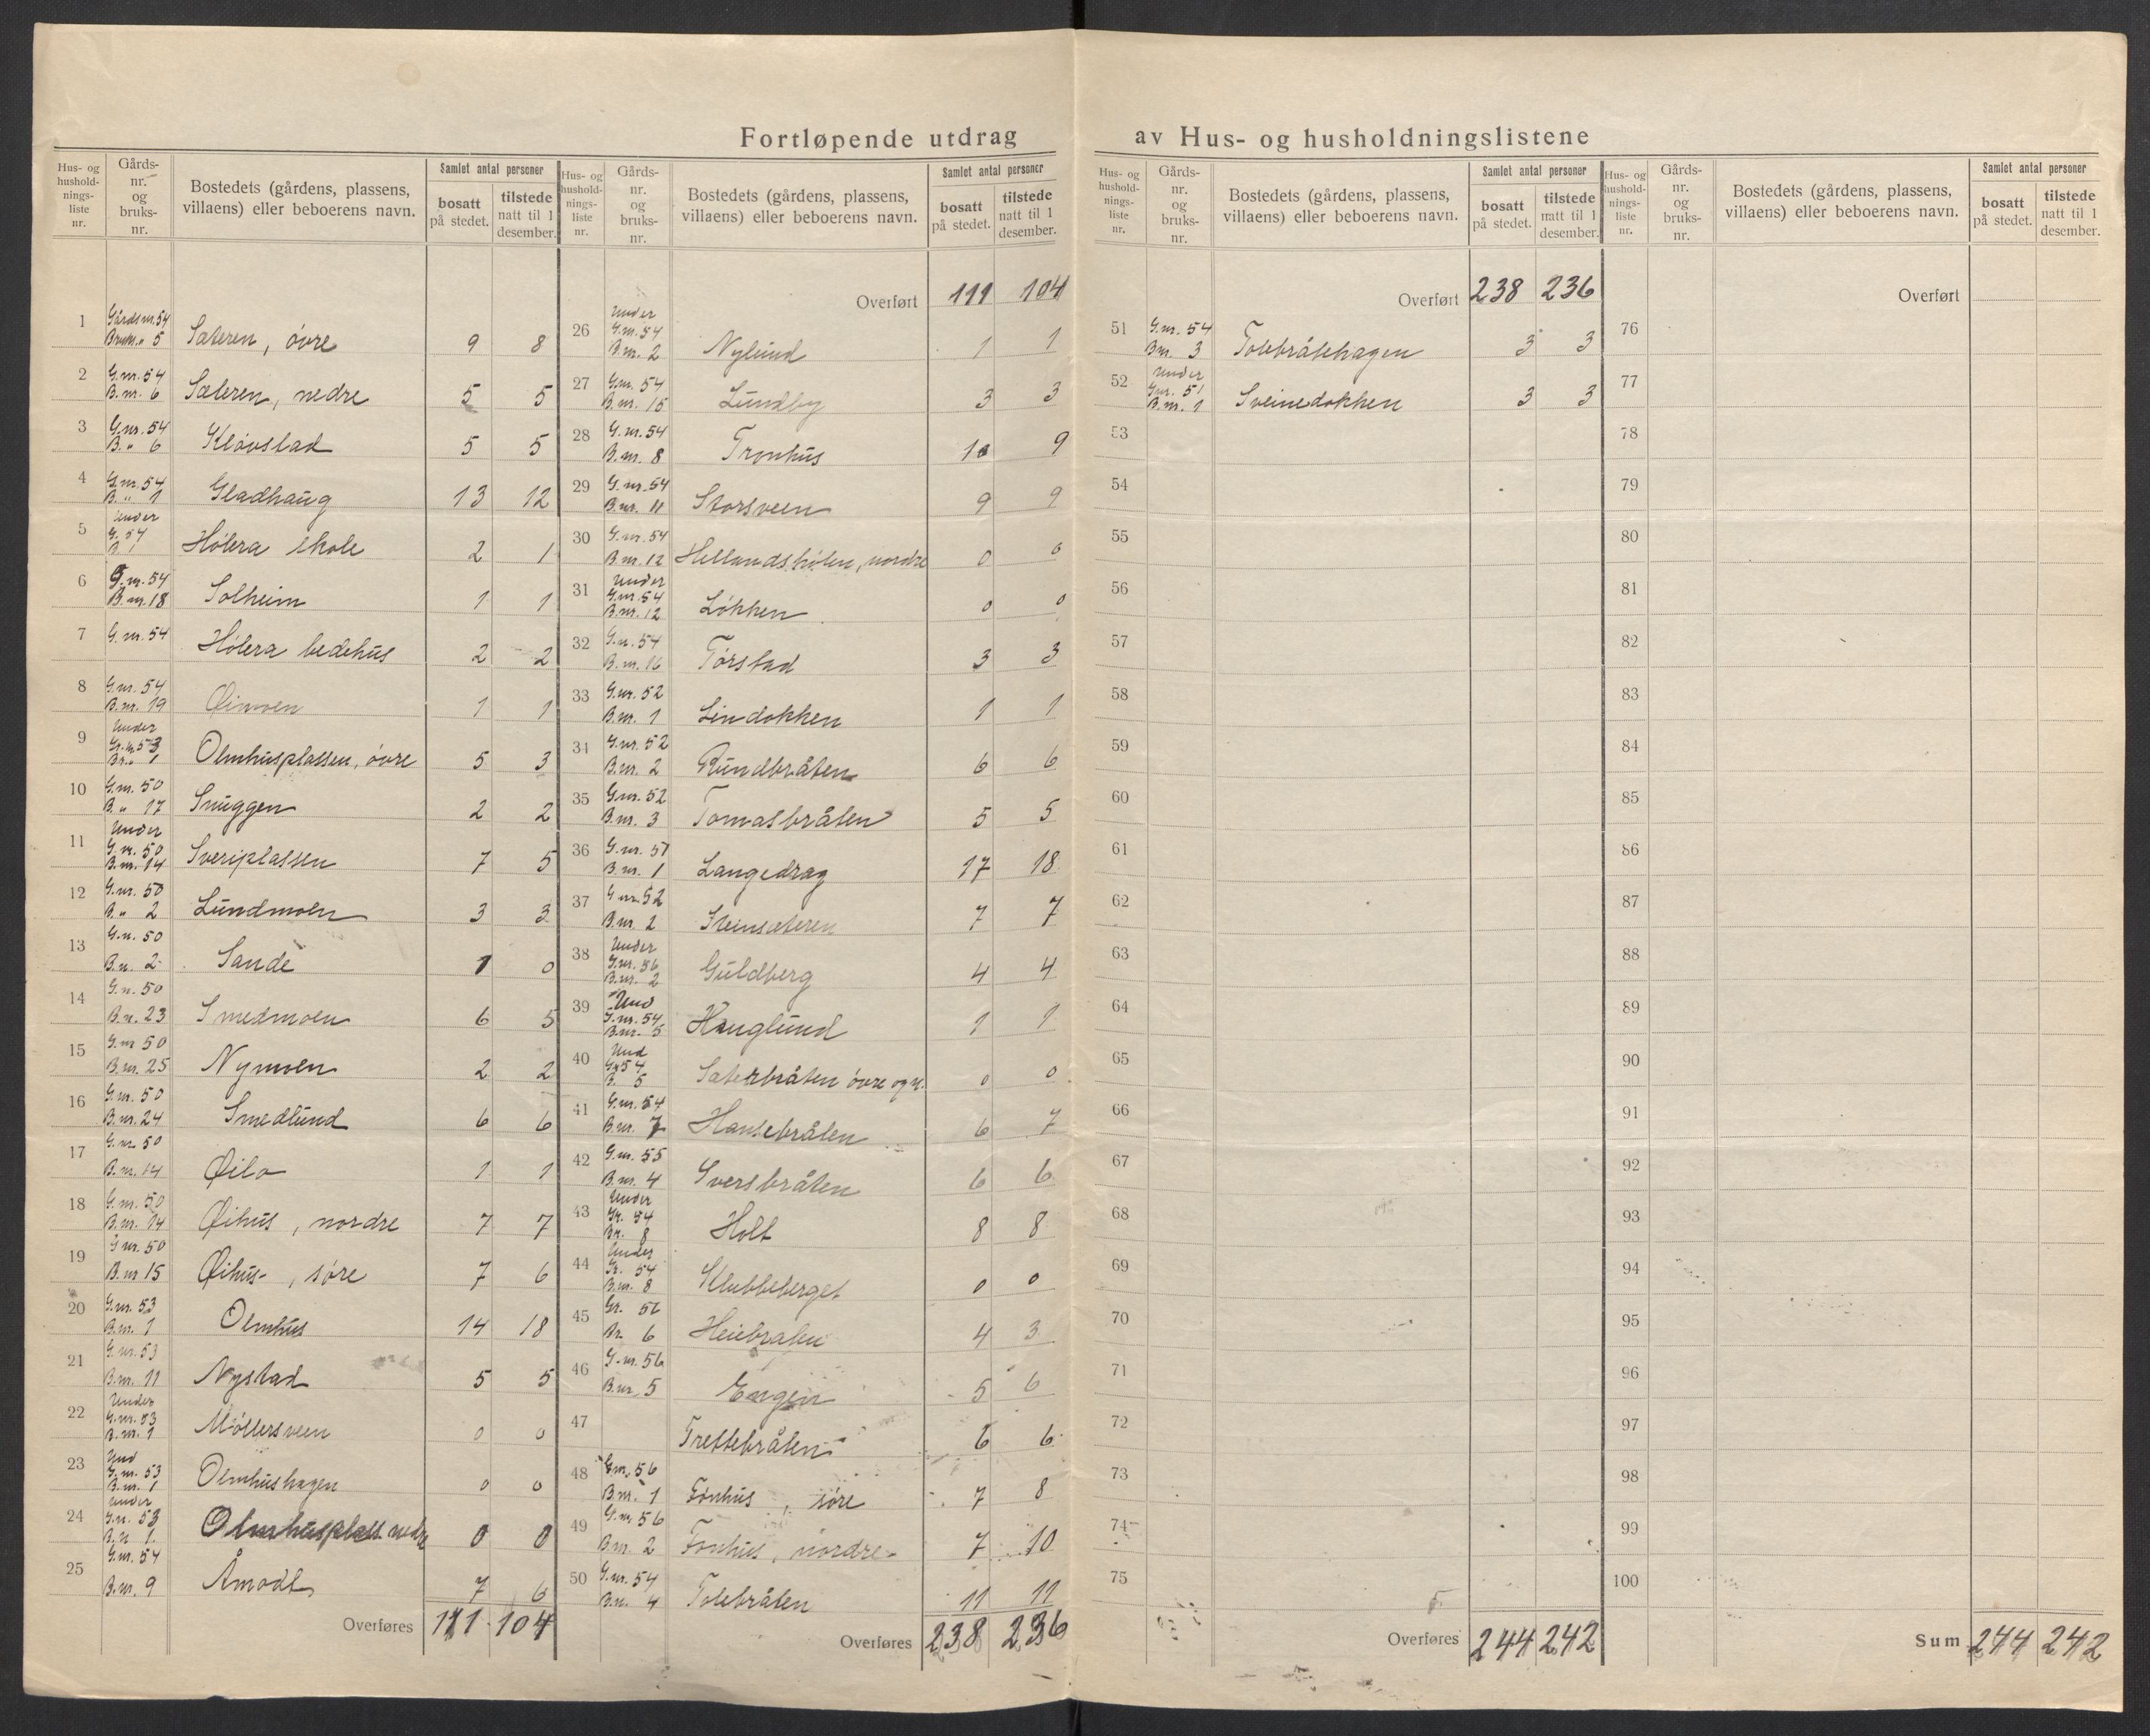 Fortløpende utdrag av Hus- og husholdningslistene
Hus- og husholdnings-liste nr. | Gårds-nr. og bruks-nr. | Bostedets (gårdens, plassens, villaens) eller beboerens navn. | Samlet antal personer: bosatt på stedet. | tilstede natt til 1 desember.
1 Gårdsnr. 54 Bruks. " 5 Sæteren, øvre 9 8
2 G.nr. 54 B.nr. 6 Sæteren, nedre 5 5
3 G.nr. 54 B. " 6 Kløvstad 5 5
4 G.nr. 54 B. " 1 Gladhaug 13 12
5 Under G. 54 B. 1 Hølera skole 2 1
6 G.nr. 54 B.nr. 18 Solheim 1 1
7 G.nr. 54 Hølera bedehus 2 2
8 G.nr. 54 B.nr. 19 Øimoen 1 1
9 Under Gr.n. 53 Br. " 1 Olmhusplassen, øvre 5 3
10 G.nr. 50 B. " 17 Snuggen 2 2
11 Under G.nr. 50 B.nr. 14 Sveriplassen 7 5
12 G.nr. 50 B. " 2 Lundmoen 3 3
13 G.n. 50 B.n. 2 Sande 1 0
14 G.n. 50 B.n. 23 Smedmoen 6 5
15 G.nr 50 B.nr. 25 Nymoen 2 2
16 G.nr. 50 B.nr. 24 Smedlund 6 6
17 G.nr. 50 B.nr. 14 Øilo 1 1
18 G.nr. 50 B.nr. 14 Øihus, nordre 7 7
19 G nr. 50 B.nr 15 Øihus-, søre 7 6
20 G.nr. 53 B.nr. 1 Olmhus 14 18
21 G.nr. 53 B.nr. 11 Nystad 5 5
22 Under G.nr. 53 B.nr. 1 Møllersveen 0 0
23 Und G.nr. 53 B.nr. 1 Olmhushagen 0 0
24 Under G.n. 53 B.n 1. Olmhusplass. nedre 0 0
25 G.nr. 54 B.nr. 9 Åmodt 7 6
Overføres 111 104
Hus- og husholdnings-liste nr. | Gårds-nr. og bruks-nr. | Bostedets (gårdens, plassens, villaens) eller beboerens navn. | Samlet antal personer: bosatt på stedet. | tilstede natt til 1 desember.
Overført 111 104
26 Under G.nr. 54 B.nr. 2 Nylund 1 1
27 G.nr. 54 B.nr. 15 Lundby 3 3
28 G.nr. 54 B.nr. 8 Tronhus 10 9
29 G.nr. 54 B.nr. 11 Storsveen 9 9
30 G.nr. 54 B.nr. 12 Hellandshølen, nordre 0 0
31 Under G.nr. 54 B.nr. 12 Løkken 0 0
32 G.nr. 54 B.nr. 16 Tørstad 3 3
33 G.nr. 52 B.nr. 1 Lindokken 1 1
34 G.nr. 52 B.nr. 2 Rundbråten 6 6
35 G.nr. 52 B.nr. 3 Tomasbråten 5 5
36 G.nr. 51 B.nr. 1 Langedrag 17 18
37 G nr. 52 B.nr 2 Steinsæteren 7 7
38 Under G.nr. 56 B.nr. 2 Guldberg 4 4
39 Und G.nr. 54 B.nr. 5 Hauglund 1 1
40 Und G. 54 B. 5 Sæterbråten øvre og n. 0 0
41 G.nr. 54 B.nr. 7 Hansebråten 6 7
42 G.nr. 55 B.nr. 4 Sversbråten 6 6
43 Under Gr. 54 Br. 8 Holt 8 8
44 Under Gr. 54 B.nr. 8 Klubbeberget 0 0
45 Gr. 56 Br. 6 Heiebraten 4 3
46 G.nr. 56 B.nr 5 Engen 5 6
47 Trettebråten 6 6
48 Gnr. 56 B.nr. 1 Fonhus, søre 7 8
49 G.nr 56 B.nr. 2 Fonhus, nordre 7 10
50 G.nr. 54 B.n. 4 Tolebråten 11 11
Overføres 238 236
Hus- og husholdnings-liste nr. | Gårds-nr. og bruks-nr. | Bostedets (gårdens, plassens, villaens) eller beboerens navn. | Samlet antal personer: bosatt på stedet. | tilstede natt til 1 desember.
Overført 238 236
51 G.nr. 54 B.nr. 3 Tolebråtehagen 3 3
52 Under Gnr. 51 B.nr. 1 Sveinedokken 3 3
53
54
55
56
57
58
59
60
61
62
63
64
65
66
67
68
69
70
71
72
73
74
75
Overføres 244 242
Hus- og husholdnings-liste nr. | Gårds-nr. og bruks-nr. | Bostedets (gårdens, plassens, villaens) eller beboerens navn. | Samlet antal personer: bosatt på stedet. | tilstede natt til 1 desember.
Overført
76
77
78
79
80
81
82
83
84
85
86
87
88
89
90
91
92
93
94
95
96
97
98
99
100
Sum 244 242